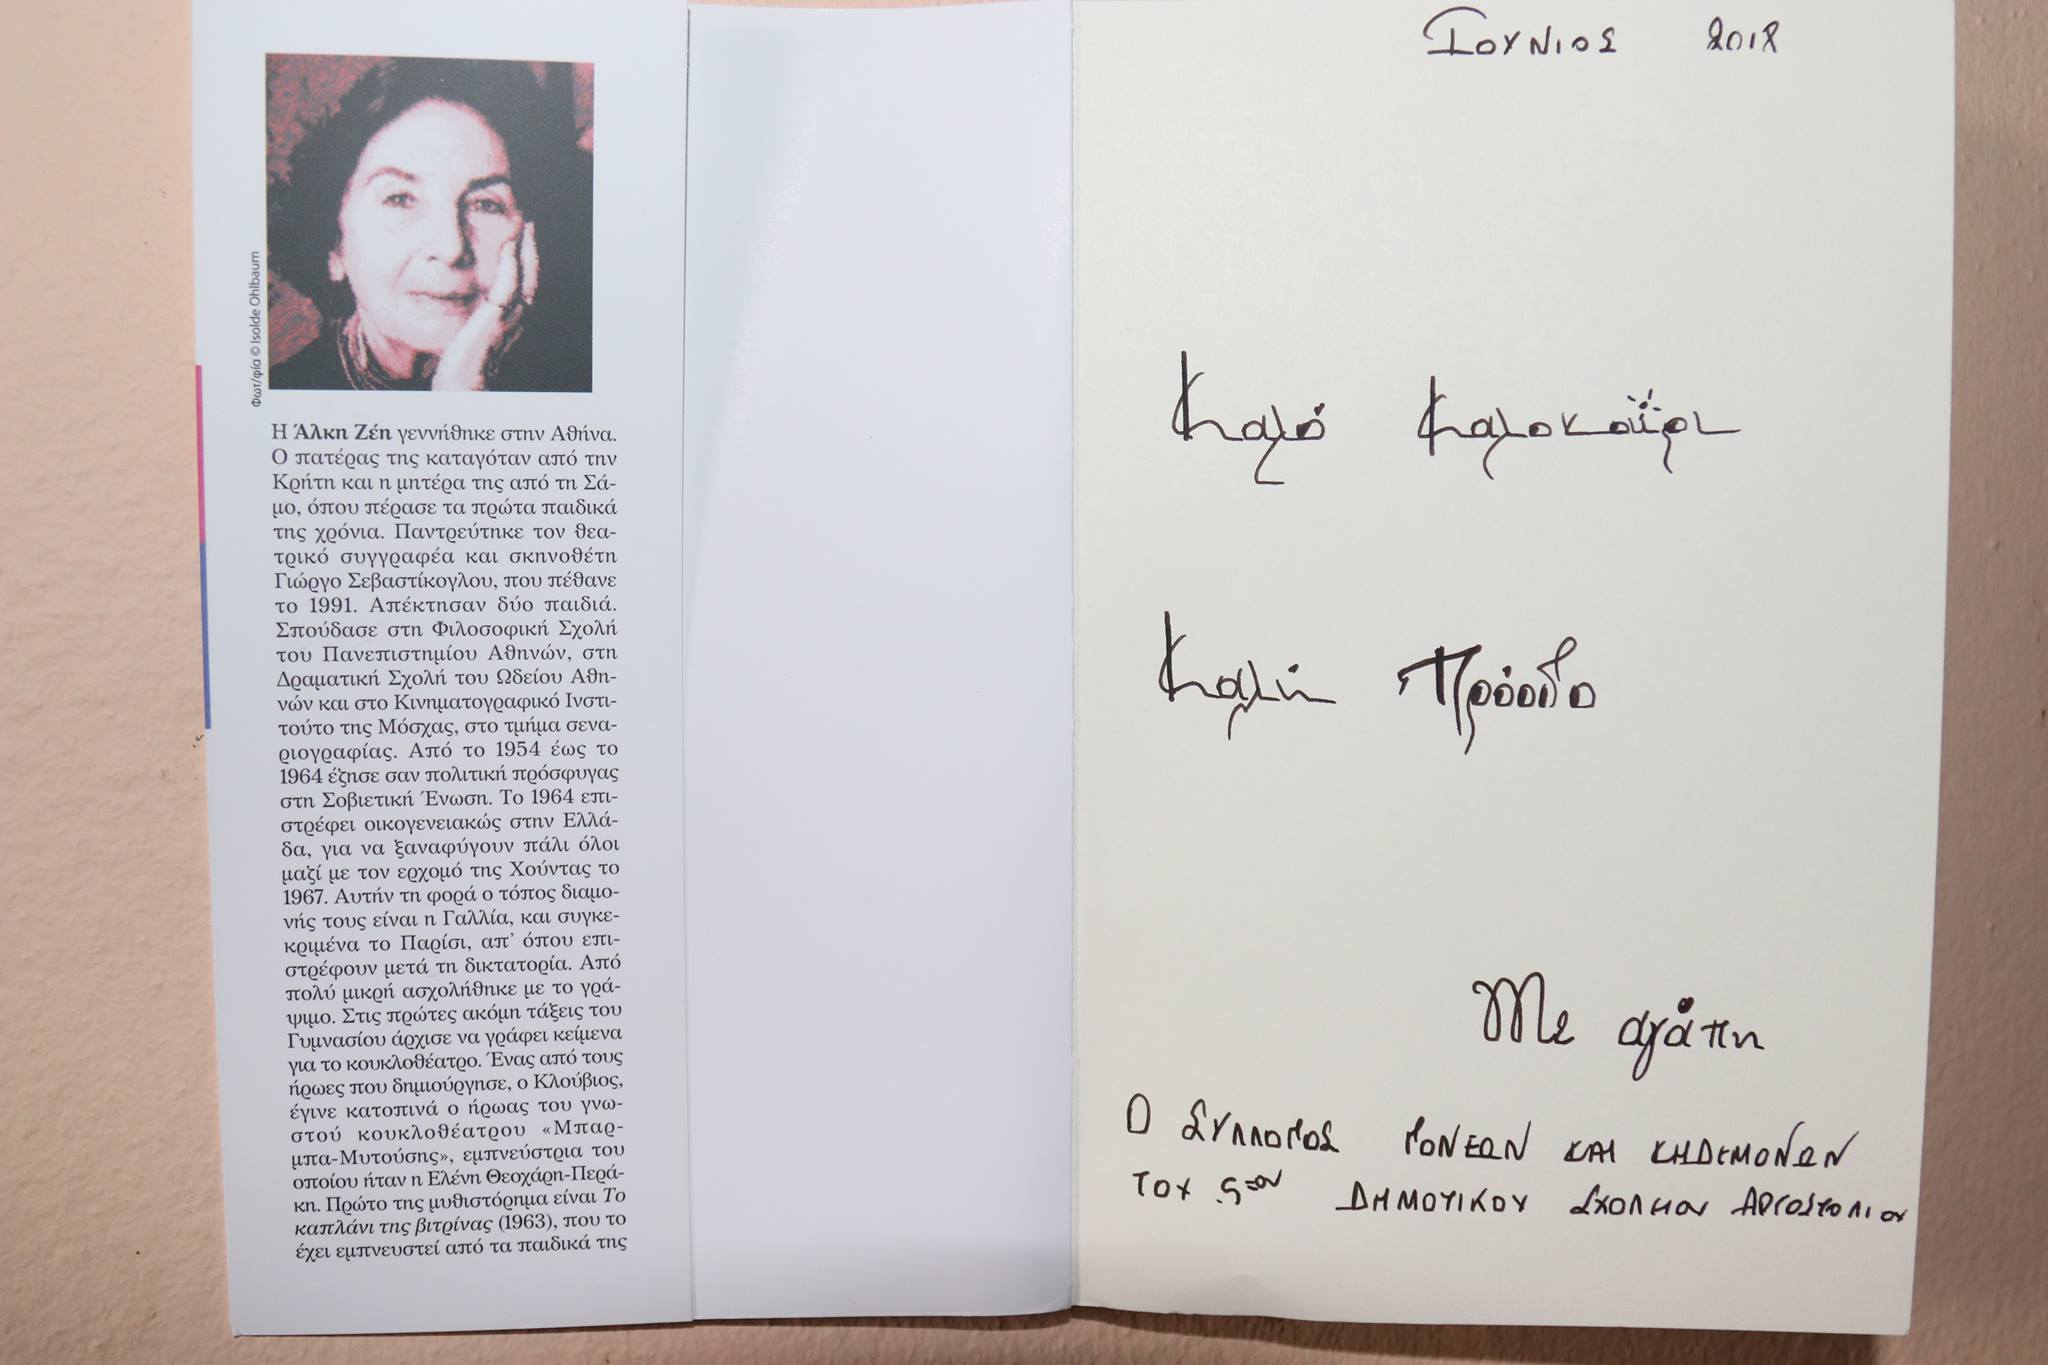 Φωτ/φία © Isolde Ohlbaum
Η Άλκη Ζέη γεννήθηκε στην Αθήνα.
Ο πατέρας της καταγόταν από την
Κρήτη και η μητέρα της από τη Σά-
μο, όπου πέρασε τα πρώτα παιδικά
της χρόνια. Παντρεύτηκε τον θεα-
τρικό συγγραφέα και σκηνοθέτη
Γιώργο Σεβαστίκογλου, που πέθανε
το 1991. Απέκτησαν δύο παιδιά.
Σπούδασε στη Φιλοσοφική Σχολή
του Πανεπιστημίου Αθηνών, στη
Δραματική Σχολή του Ωδείου Αθη-
νών και στο Κινηματογραφικό Ινστι-
τούτο της Μόσχας, στο τμήμα σενα-
ριογραφίας. Από το 1954 έως το
1964 έζησε σαν πολιτική πρόσφυγας
στη Σοβιετική Ένωση. Το 1964 επι-
στρέφει οικογενειακώς στην Ελλά-
δα, για να ξαναφύγουν πάλι όλοι
μαζί με τον ερχομό της Χούντας το
1967. Αυτήν τη φορά ο τόπος διαμο-
νής τους είναι η Γαλλία, και συγκε-
κριμένα το Παρίσι, απ' όπου επι-
στρέφουν μετά τη δικτατορία. Από
πολύ μικρή ασχολήθηκε με το γρά-
ψιμο. Στις πρώτες ακόμη τάξεις του
Γυμνασίου άρχισε να γράφει κείμενα
για το κουκλοθέατρο. Ένας από τους
ήρωες που δημιούργησε, ο Κλούβιος,
έγινε κατοπινά ο ήρωας του γνω-
στού κουκλοθέατρου «Μπαρ-
μπα-Μυτούσης», εμπνεύστρια του
οποίου ήταν η Ελένη Θεοχάρη-Περά-
κη. Πρώτο της μυθιστόρημα είναι Το
καπλάνι της βιτρίνας (1963), που το
έχει εμπνευστεί από τα παιδικά της
ΙΟΥΝΙΟΣ 2018
Καλό Καλοκαίρι
Καλή Πρόοδο
Με αγάπη
Ο ΣΥΛΛΟΓΟΣ ΓΟΝΕΩΝ ΚΑΙ ΚΗΔΕΜΟΝΩΝ
ΤΟΥ ΔΗΜΟΤΙΚΟΥ ΣΧΟΛΕΙΟΥ ΑΡΓΟΣΤΟΛΙΟΥ